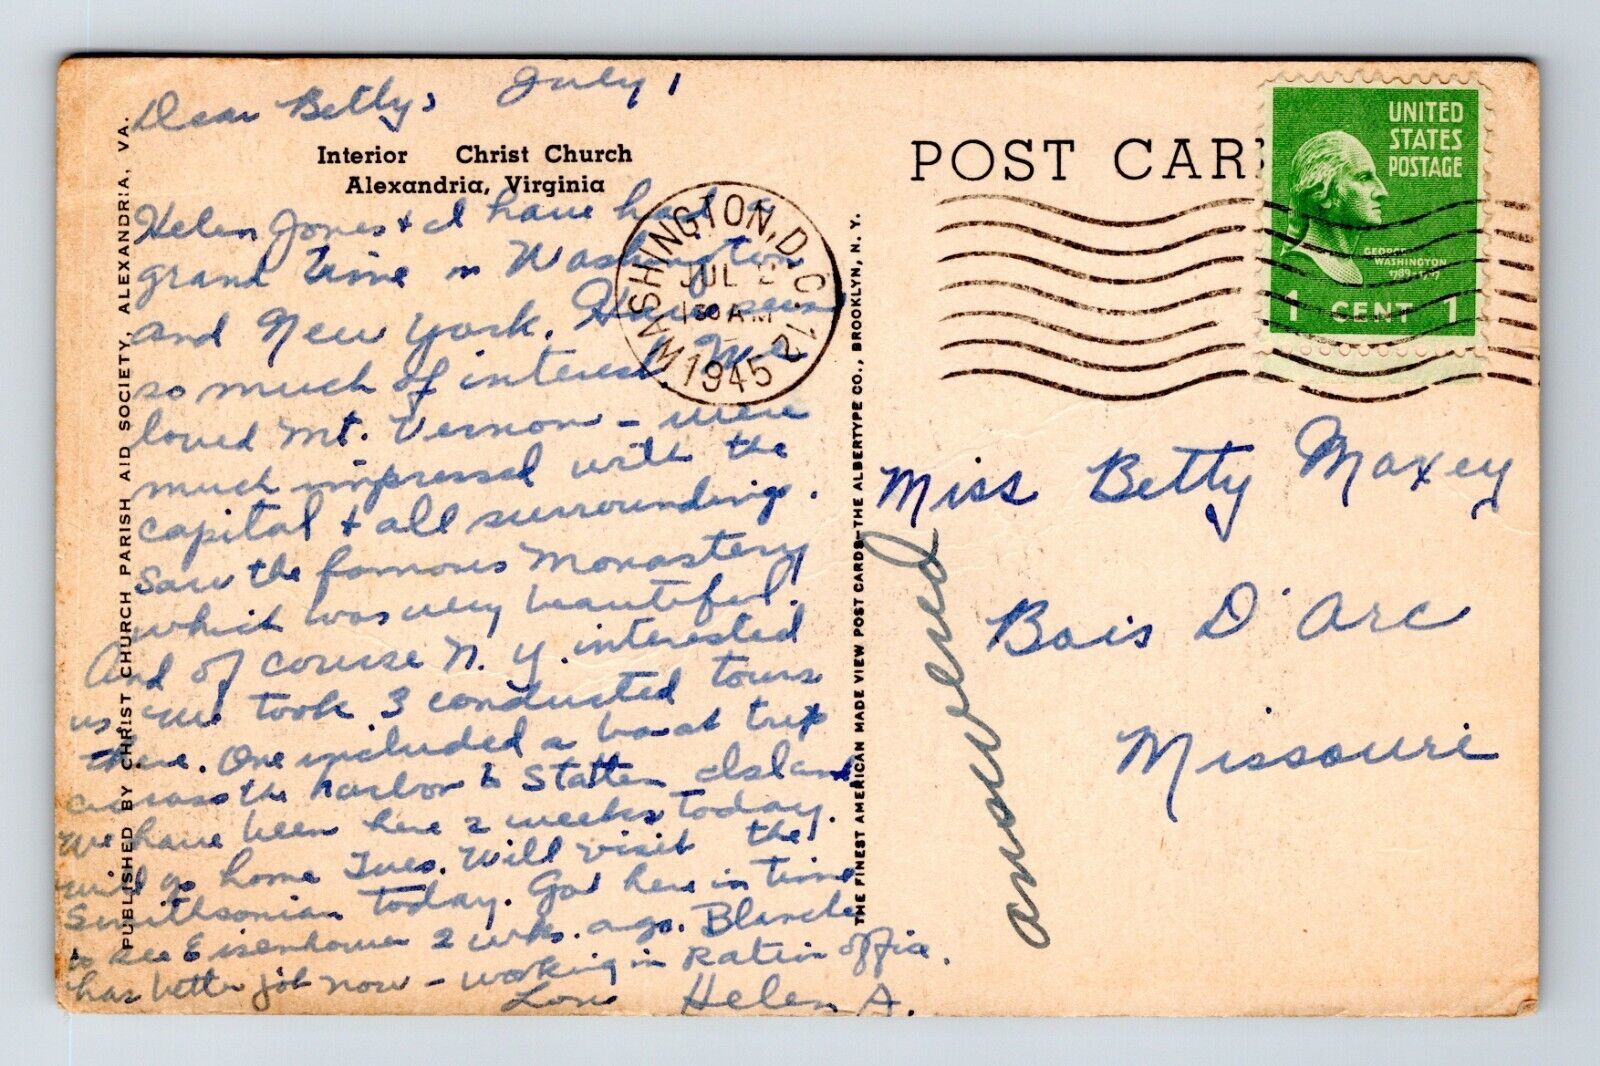 Dear Betty, July 1
Interior Christ Church
Alexandria, Virginia
Helen Jones & I have had a
grand time in Washington
and New York. Have seen
so much of interest. We
loved Mt. Vernon - were
much impressed with the
capital & all surroundings.
Saw the famous Monastery
which was very beautiful.
And of course N. Y. interested
us. We took 3 conducted tours
there. One included a boat trip
across the harbor to Statten Island
We have been here 2 weeks today.
Will go home Tues. Will visit the
Smithsonian today. Got here in time
to see Eisenhower 2 wks. ago. Blanche
has better job now - working in Ration office.
Love Helen A.
PUBLISHED BY CHRIST CHURCH PARISH AID SOCIETY, ALEXANDRIA, VA.
THE FINEST AMERICAN MADE VIEW POST CARDS—THE ALBERTYPE CO., BROOKLYN, N. Y.
WASHINGTON, D.C. 12
JUL 2
130 AM
1945
POST CAR
UNITED
STATES
POSTAGE
GEORGE
WASHINGTON
1789-1797
1 CENT 1
Miss Betty Maxey
Bois D'Arc
Missouri
answered